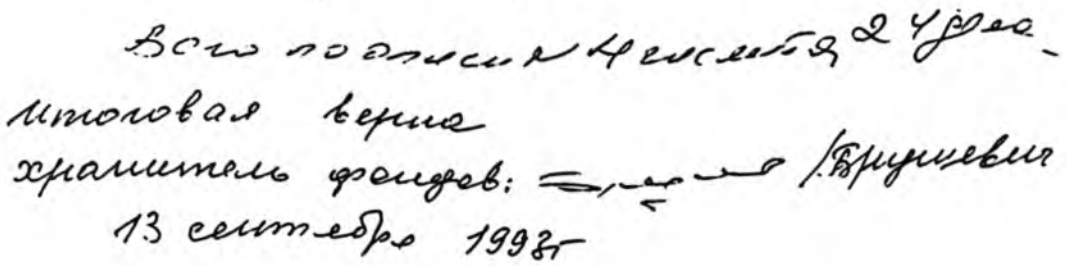 Всего по описи № 4 числится 24 дела
итоговая верна
хранитель фондов: /Брушевич
13 сентября 1993г